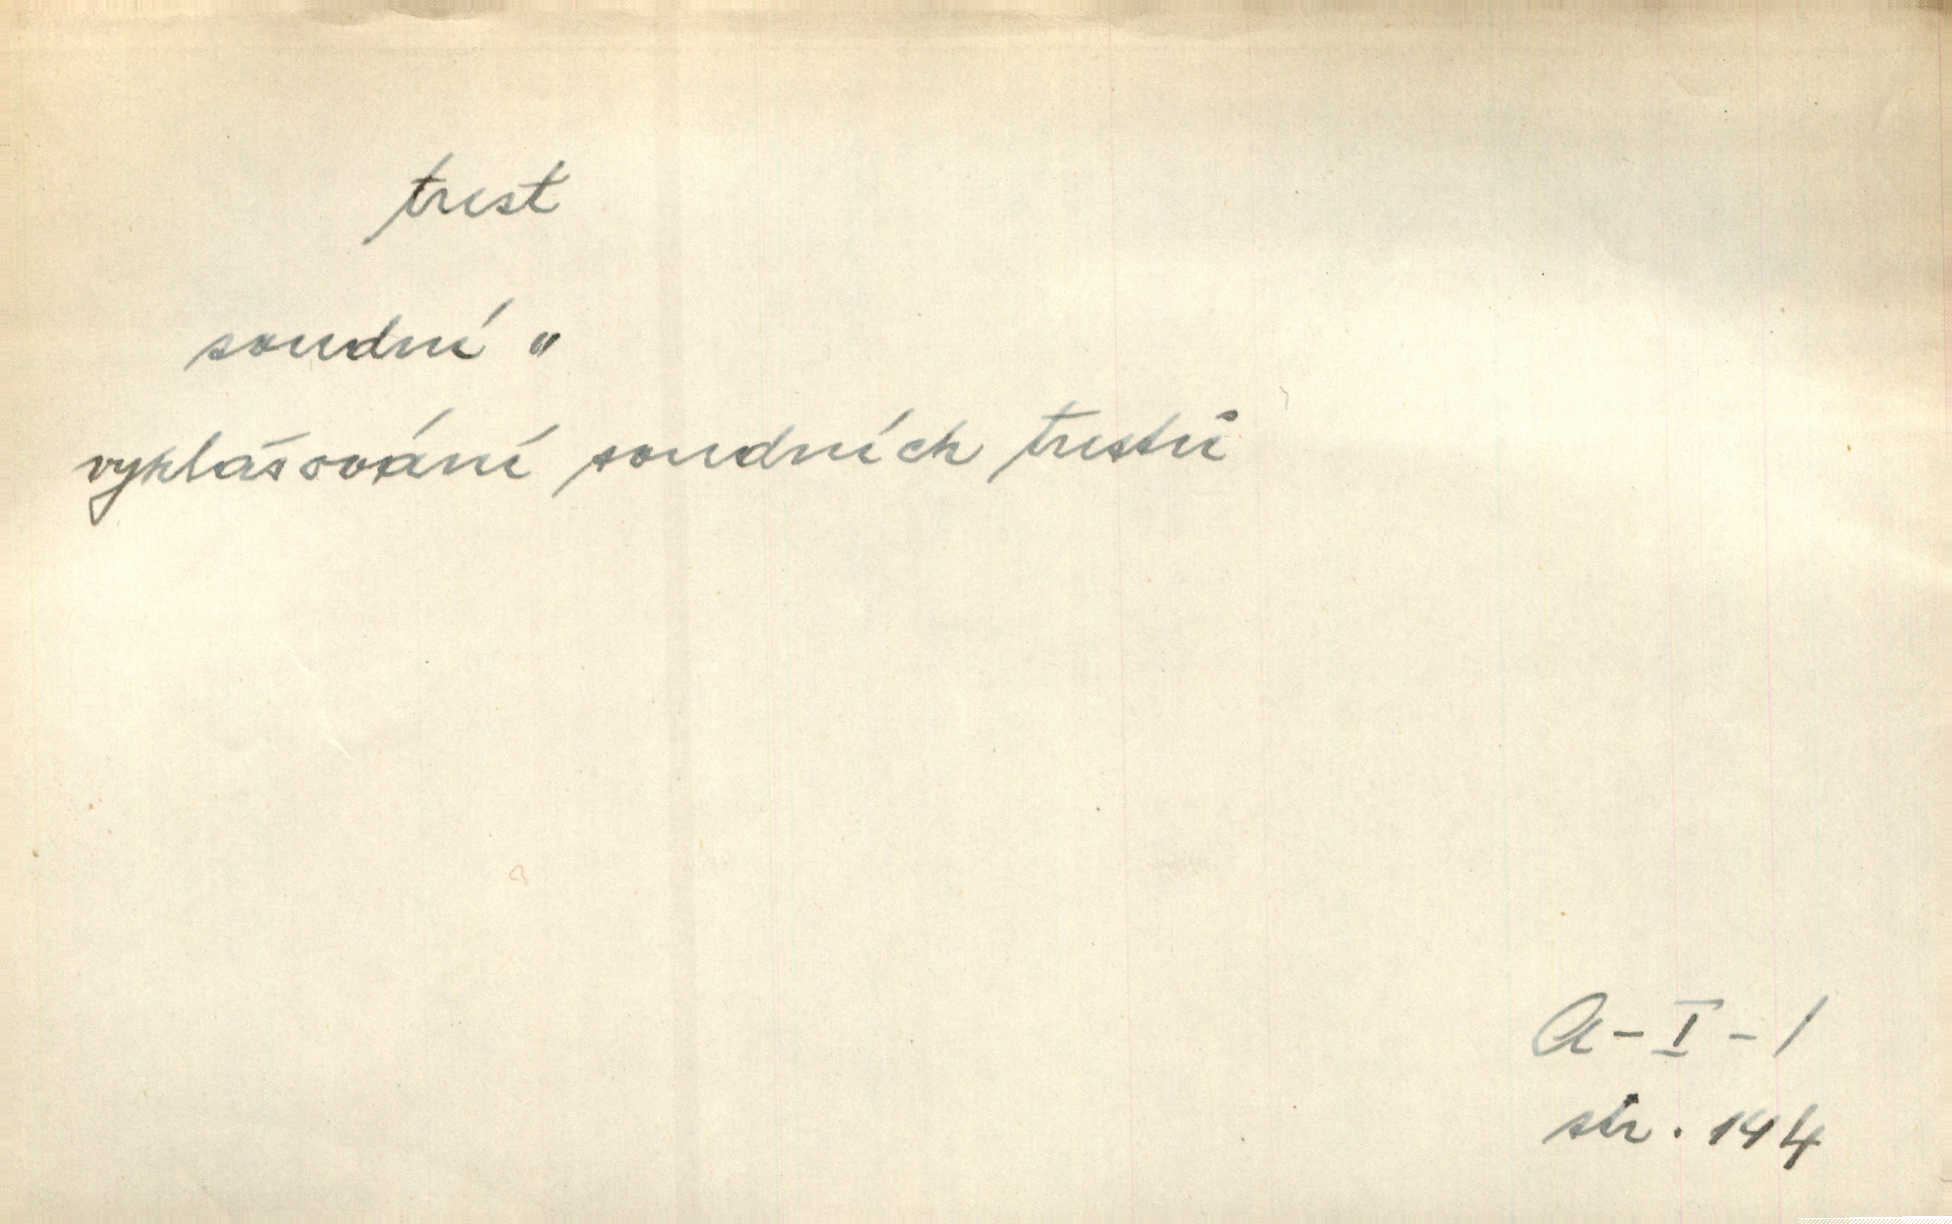 trest
soudní "
vyhlašování soudních trestů
A - I - 1
str. 144